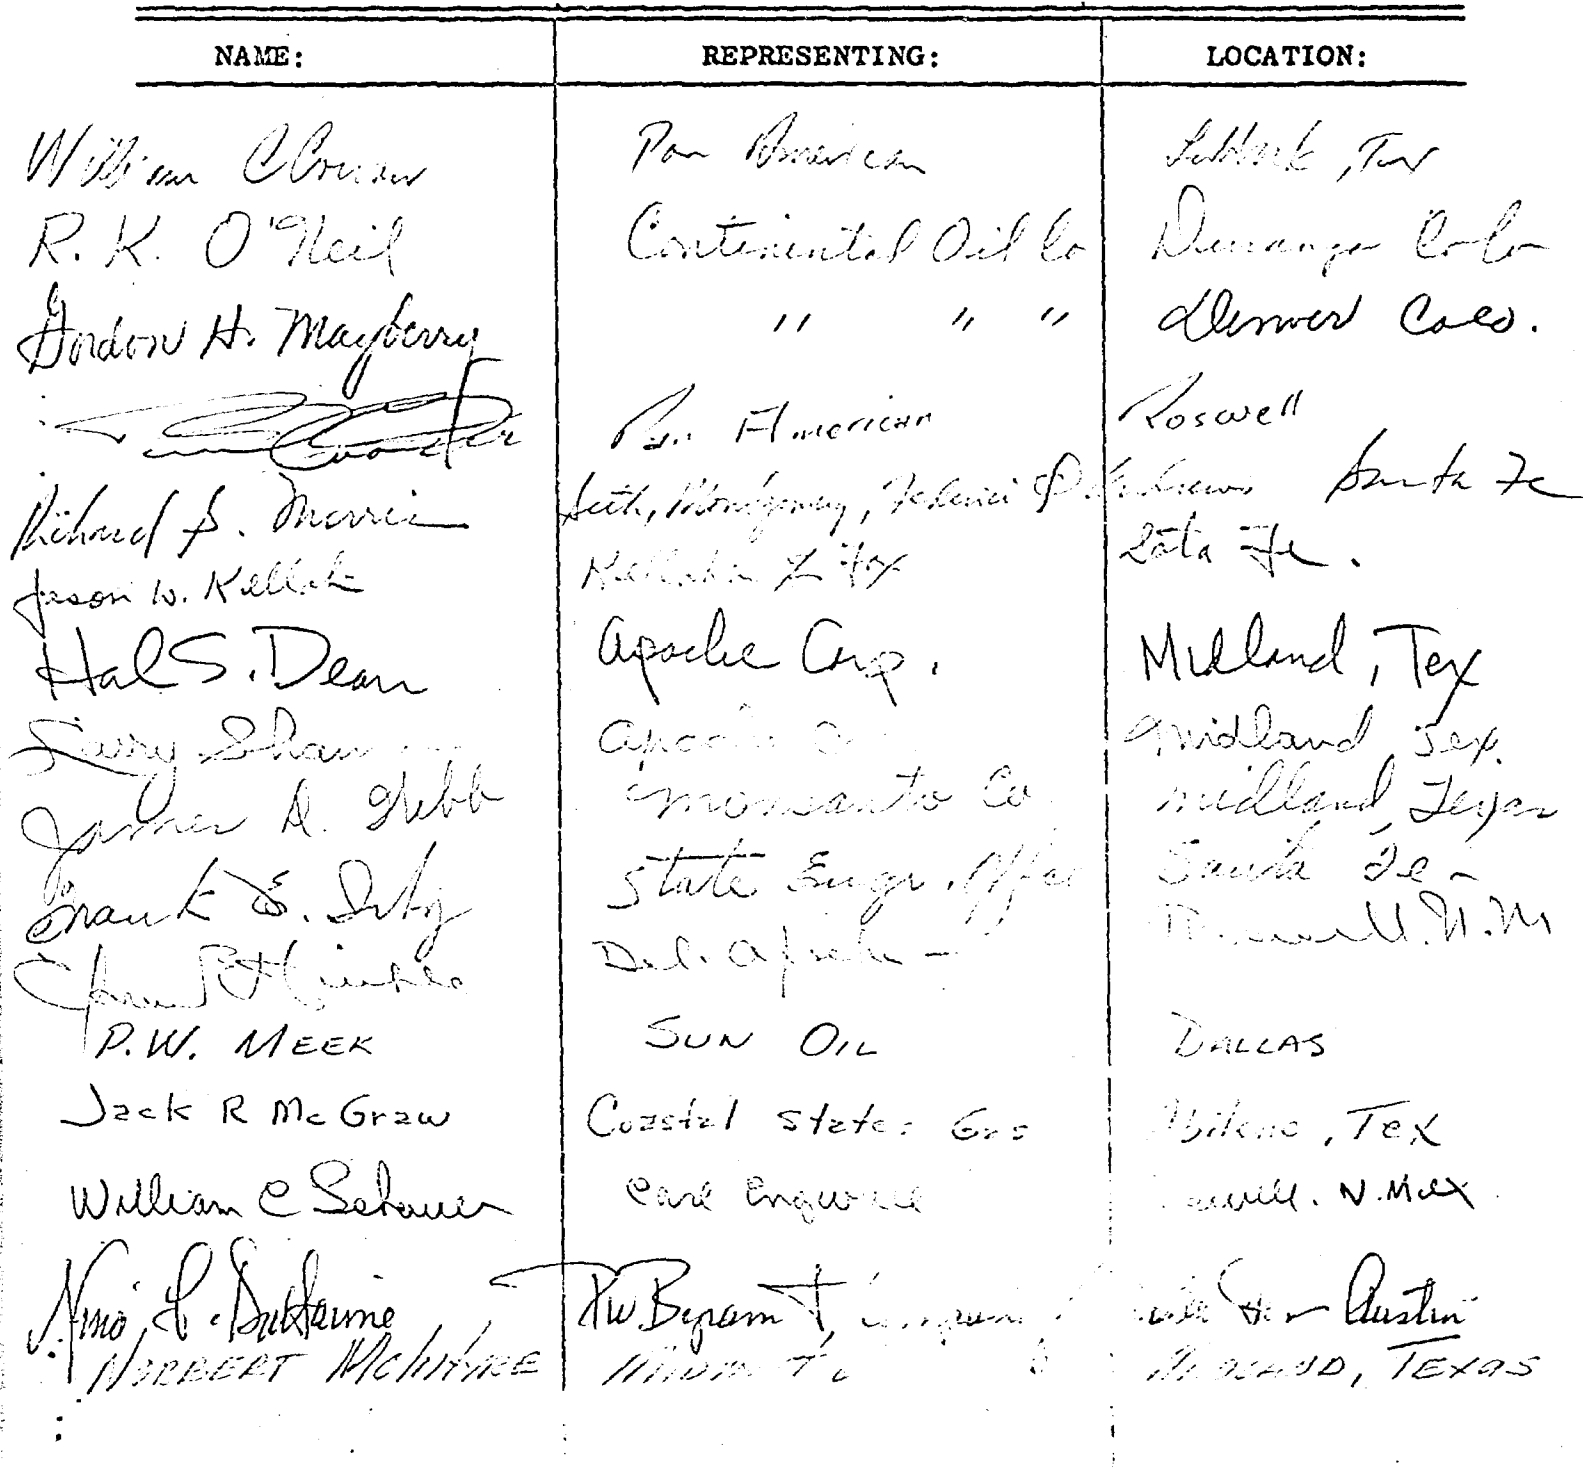 NAME: REPRESENTING: LOCATION:
William Pan American Lubbock, Tex
R. K. O'Neil Continental Oil Co Durango Colo
Gordon H. Mayberry " " " Denver Colo.
Pan American Roswell
Richard S. Morris Seth, Montgomery, Federici & Andrews Santa Fe
Jason W. Kellahin Kellahin & Fox Santa Fe.
Hal S. Dean Apache Corp. Midland, Tex
Larry Shaw Apache Midland, Tex.
James D. Webb Monsanto Co Midland, Texas
Frank E. Irby State Engr. Office Santa Fe
Del. Apache - N.M
P.W. MEEK SUN OIL DALLAS
Jack R McGraw Coastal States Gas Abilene, Tex
William C Schauer Carl Engwall N. Mex
PW Byram & Company Santa Fe - Austin
NORBERT McINTYRE MIDLAND, TEXAS